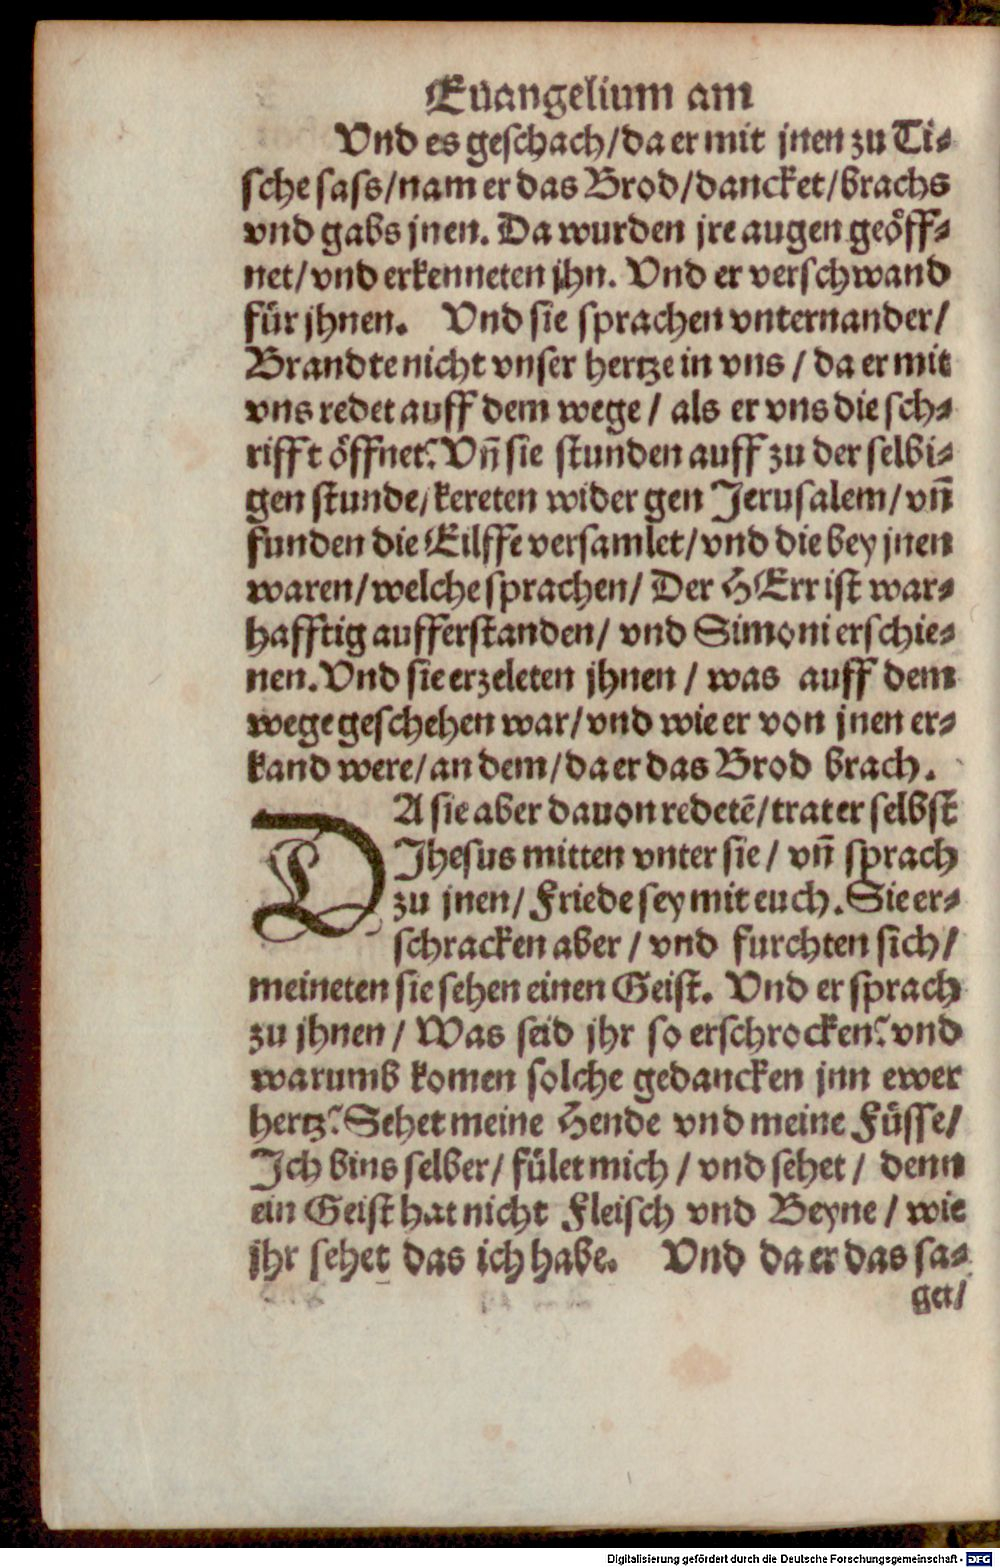 Euangelium am
Vnd es geschach/da er mit jnen zu Ti-
sche sass/nam er das Brod/dancket/brachs
vnd gabs jnen. Da wurden jre augen geöff-
net/vnd erkenneten jhn. Vnd er verschwand
für jhnen. Vnd sie sprachen vnternander/
Brandte nicht vnser hertze in vns / da er mit
vns redet auff dem wege / als er vns die sch-
rifft öffnet? Vñ sie stunden auff zu der selbi-
gen stunde/kereten wider gen Jerusalem/vñ
funden die Eilffe versamlet/vnd die bey jnen
waren/welche sprachen/ Der HErr ist war-
hafftig aufferstanden/ vnd Simoni erschie-
nen. Vnd sie erzeleten jhnen / was auff dem
wege geschehen war/vnd wie er von jnen er-
kand were/an dem/da er das Brod brach.
DA sie aber dauon redetẽ/trat er selbst
Jhesus mitten vnter sie/ vñ sprach
zu jnen/ Friede sey mit euch. Sie er-
schracken aber / vnd furchten sich/
meineten sie sehen einen Geist. Vnd er sprach
zu jhnen / Was seid jhr so erschrocken? vnd
warumb komen solche gedancken jnn ewer
hertz? Sehet meine Hende vnd meine Füsse/
Ich bins selber/ fület mich / vnd sehet / denn
ein Geist hat nicht Fleisch vnd Beyne / wie
jhr sehet das ich habe. Vnd da er das sa-
get/
Digitalisierung gefördert durch die Deutsche Forschungsgemeinschaft - DFG